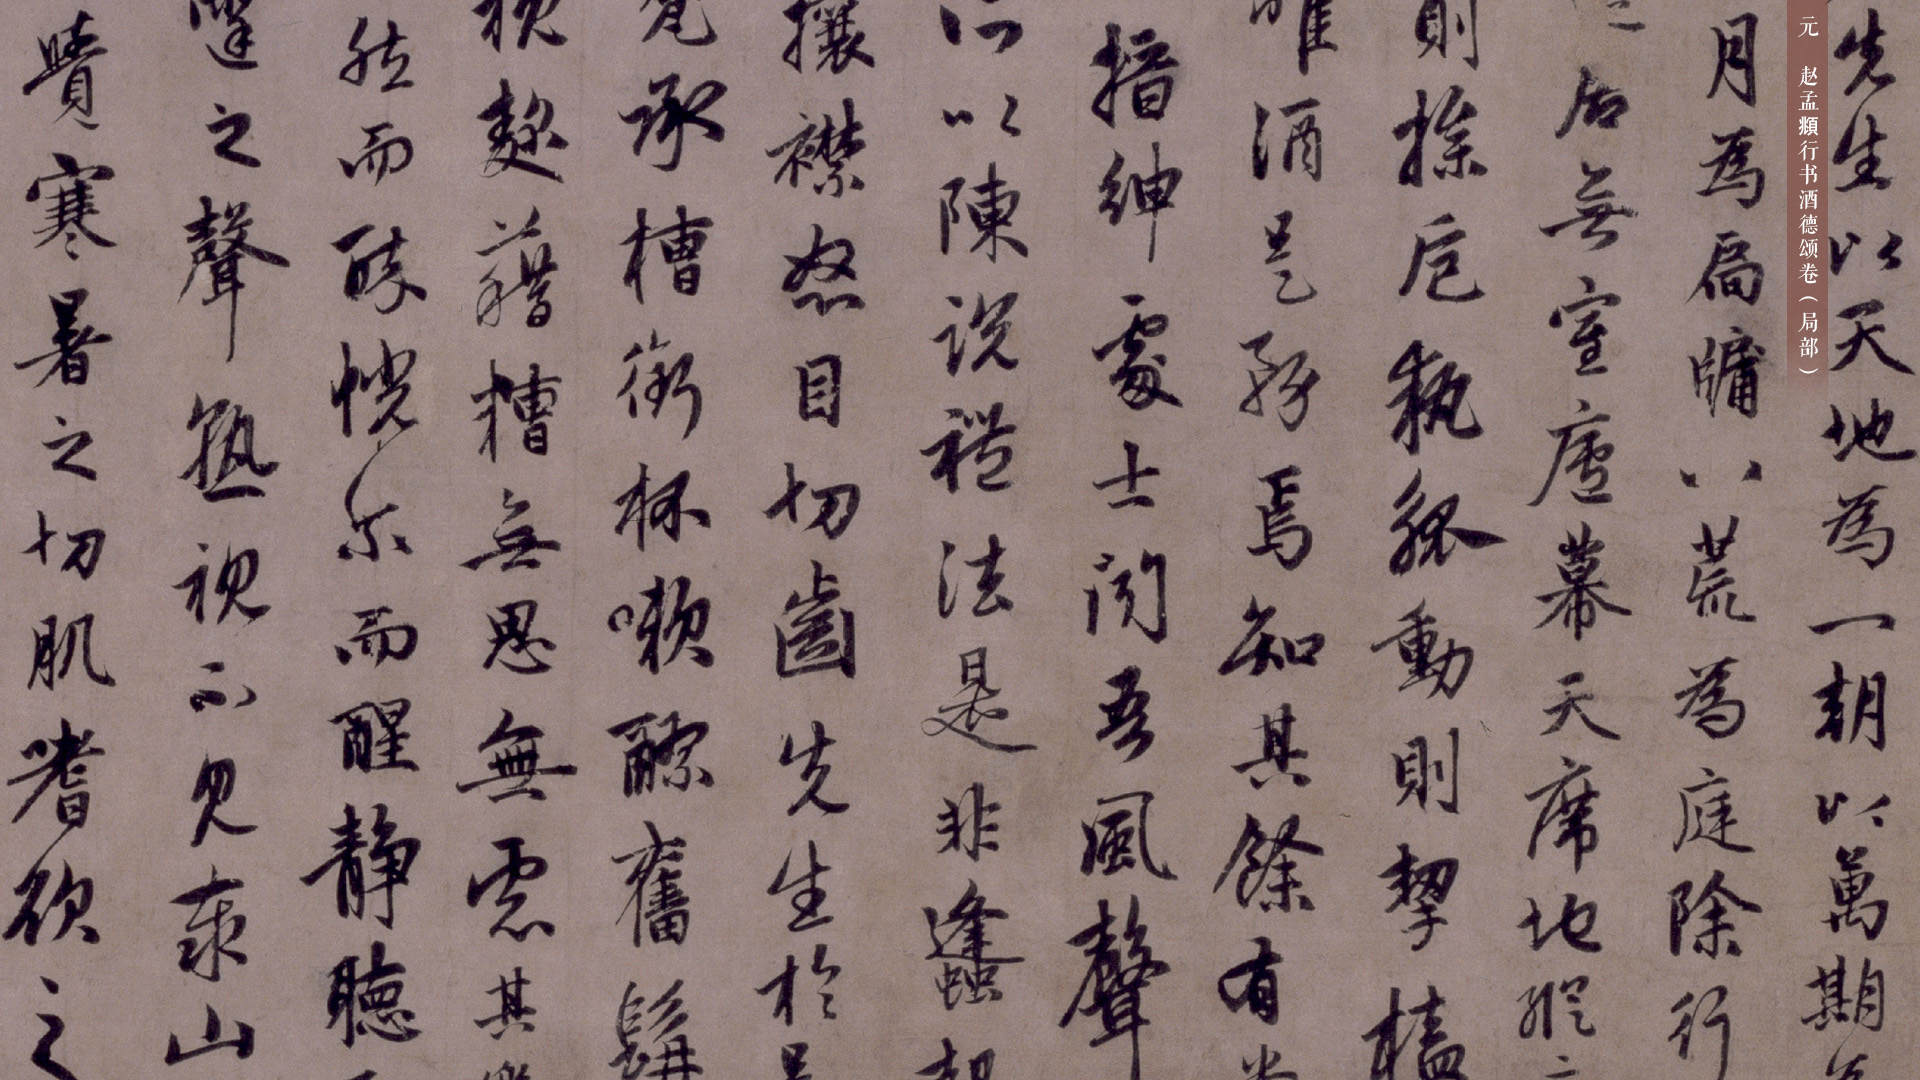 先生以天地为一朝以萬期
月為扃牖以荒為庭除行
居無室廬幕天席地縱
則操卮執觚動則挈榼
唯酒是務焉知其餘有
搢紳處士聞吾風聲
所以陳說禮法是非蜂
攘襟怒目切齒先生於
承槽銜杯嗽醪奮髯
枕麴藉糟無思無慮其
然而醉恍尔而醒静聽
之聲熟視不見泰山
覺寒暑之切肌嗜欲之
元 赵孟頫行书酒德颂卷（局部）